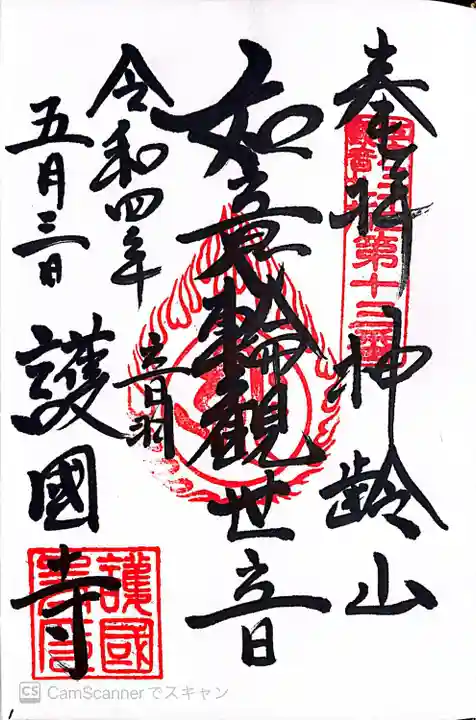 奉拝 神齢山
如意輪観世音
音羽
令和四年
五月三日 護國寺
護國
CamScannerでスキャン